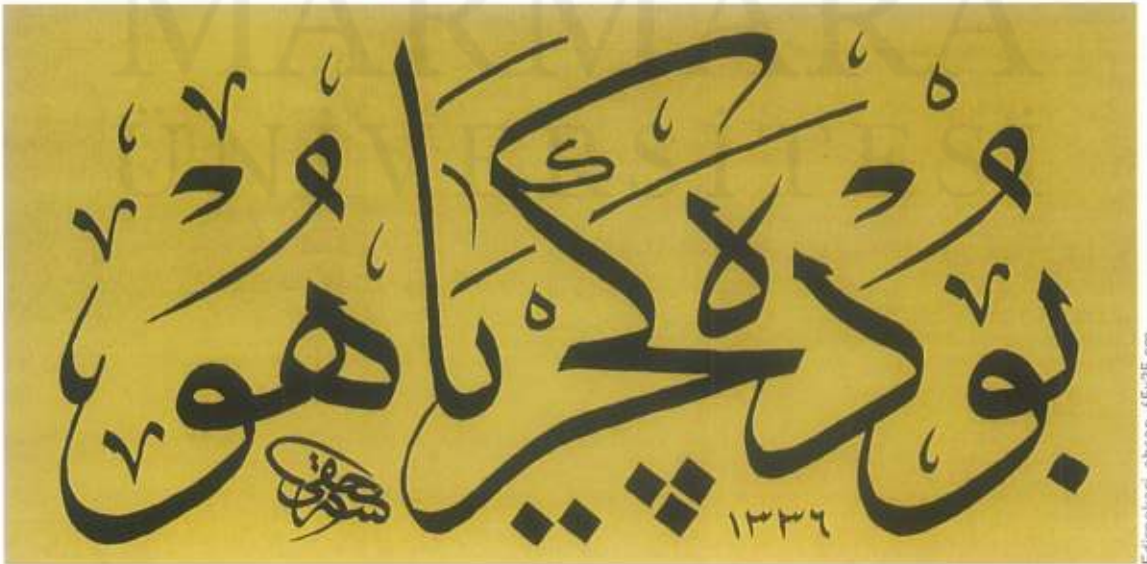 MARMARA
ÜNİVERSİTESİ
بُودَه كچر يا هُو
١٣٣٦